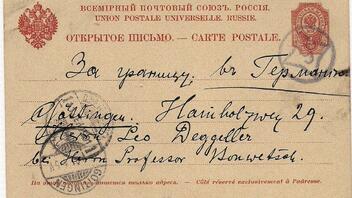 ВСЕМІРНЫЙ ПОЧТОВЫЙ СОЮЗЪ. РОССІЯ.
UNION POSTALE UNIVERSELLE. RUSSIE.
ОТКРЫТОЕ ПИСЬМО. — CARTE POSTALE.
За границу. въ Германію
Göttingen. Hainholzweg 29.
Leo Deggeller
bei Herrn Professor Bonwetsch.
GÖTTINGEN
На этой сторонѣ пишется только адресъ. — Côté réservé exclusivement à l'adresse.